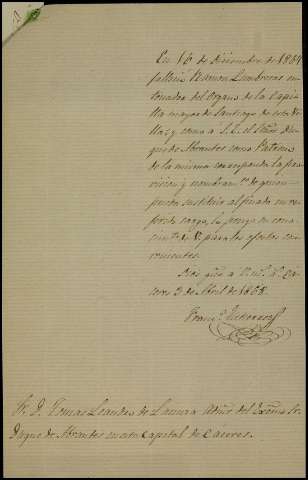 En 16 de Diciembre de 1864
falleció Ramon Lumbreras en-
tonador del Organo de la Capi-
lla mayor de Santiago de esta Vi-
lla; y como a S. E. el Señor Du-
que de Abrantes como Patrono
de la misma corresponda la pro-
vision y nombram.to de quien
pueda sustituir al finado en re-
ferido cargo, lo pongo en cono-
cimiento de V. para los efectos con-
venientes.
Dios gũe a V. m.s a.s Cá-
ceres 3 de Abril de 1865.
Fran.co
Sr. D. Tomas Leandro de Lamora Admor del Excmo Sr.
Duque de Abrantes en esta Capital de Cáceres.